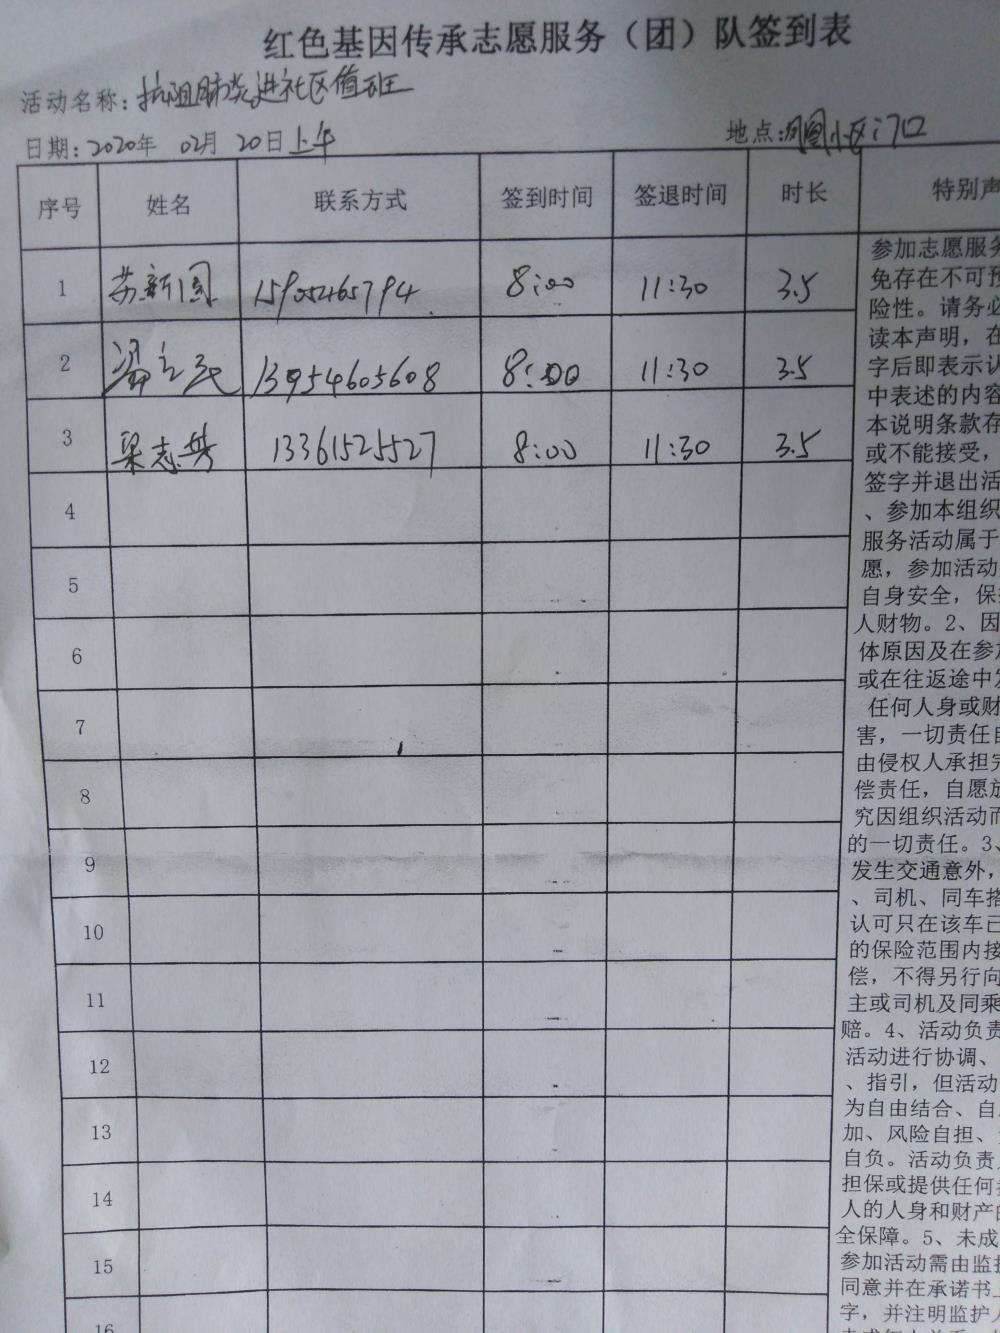 红色基因传承志愿服务（团）队签到表
活动名称：抗阻肺炎进社区值班
日期：2020年 02月 20日上午 地点：凤凰小区门口
序号 姓名 联系方式 签到时间 签退时间 时长 特别声
1 苏新国 15905465794 8:00 11:30 3.5
2 13954605608 8:00 11:30 3.5
3 梁志 13361525527 8:00 11:30 3.5
4
5
6
7
8
9
10
11
12
13
14
15
16
参加志愿服务
免存在不可预
险性。请务必
读本声明，在
字后即表示认
中表述的内容
本说明条款存
或不能接受，
签字并退出活
、参加本组织
服务活动属于
愿，参加活动
自身安全，保
人财物。2、因
体原因及在参加
或在往返途中发
任何人身或财
害，一切责任自
由侵权人承担完
偿责任，自愿放
究因组织活动而
的一切责任。3、
发生交通意外，
、司机、同车搭
认可只在该车已
的保险范围内接
偿，不得另行向
主或司机及同乘
赔。4、活动负责
活动进行协调、
、指引，但活动
为自由结合、自
加、风险自担、
自负。活动负责
担保或提供任何
人的人身和财产的
全保障。5、未成
参加活动需由监护
同意并在承诺书上
字，并注明监护人